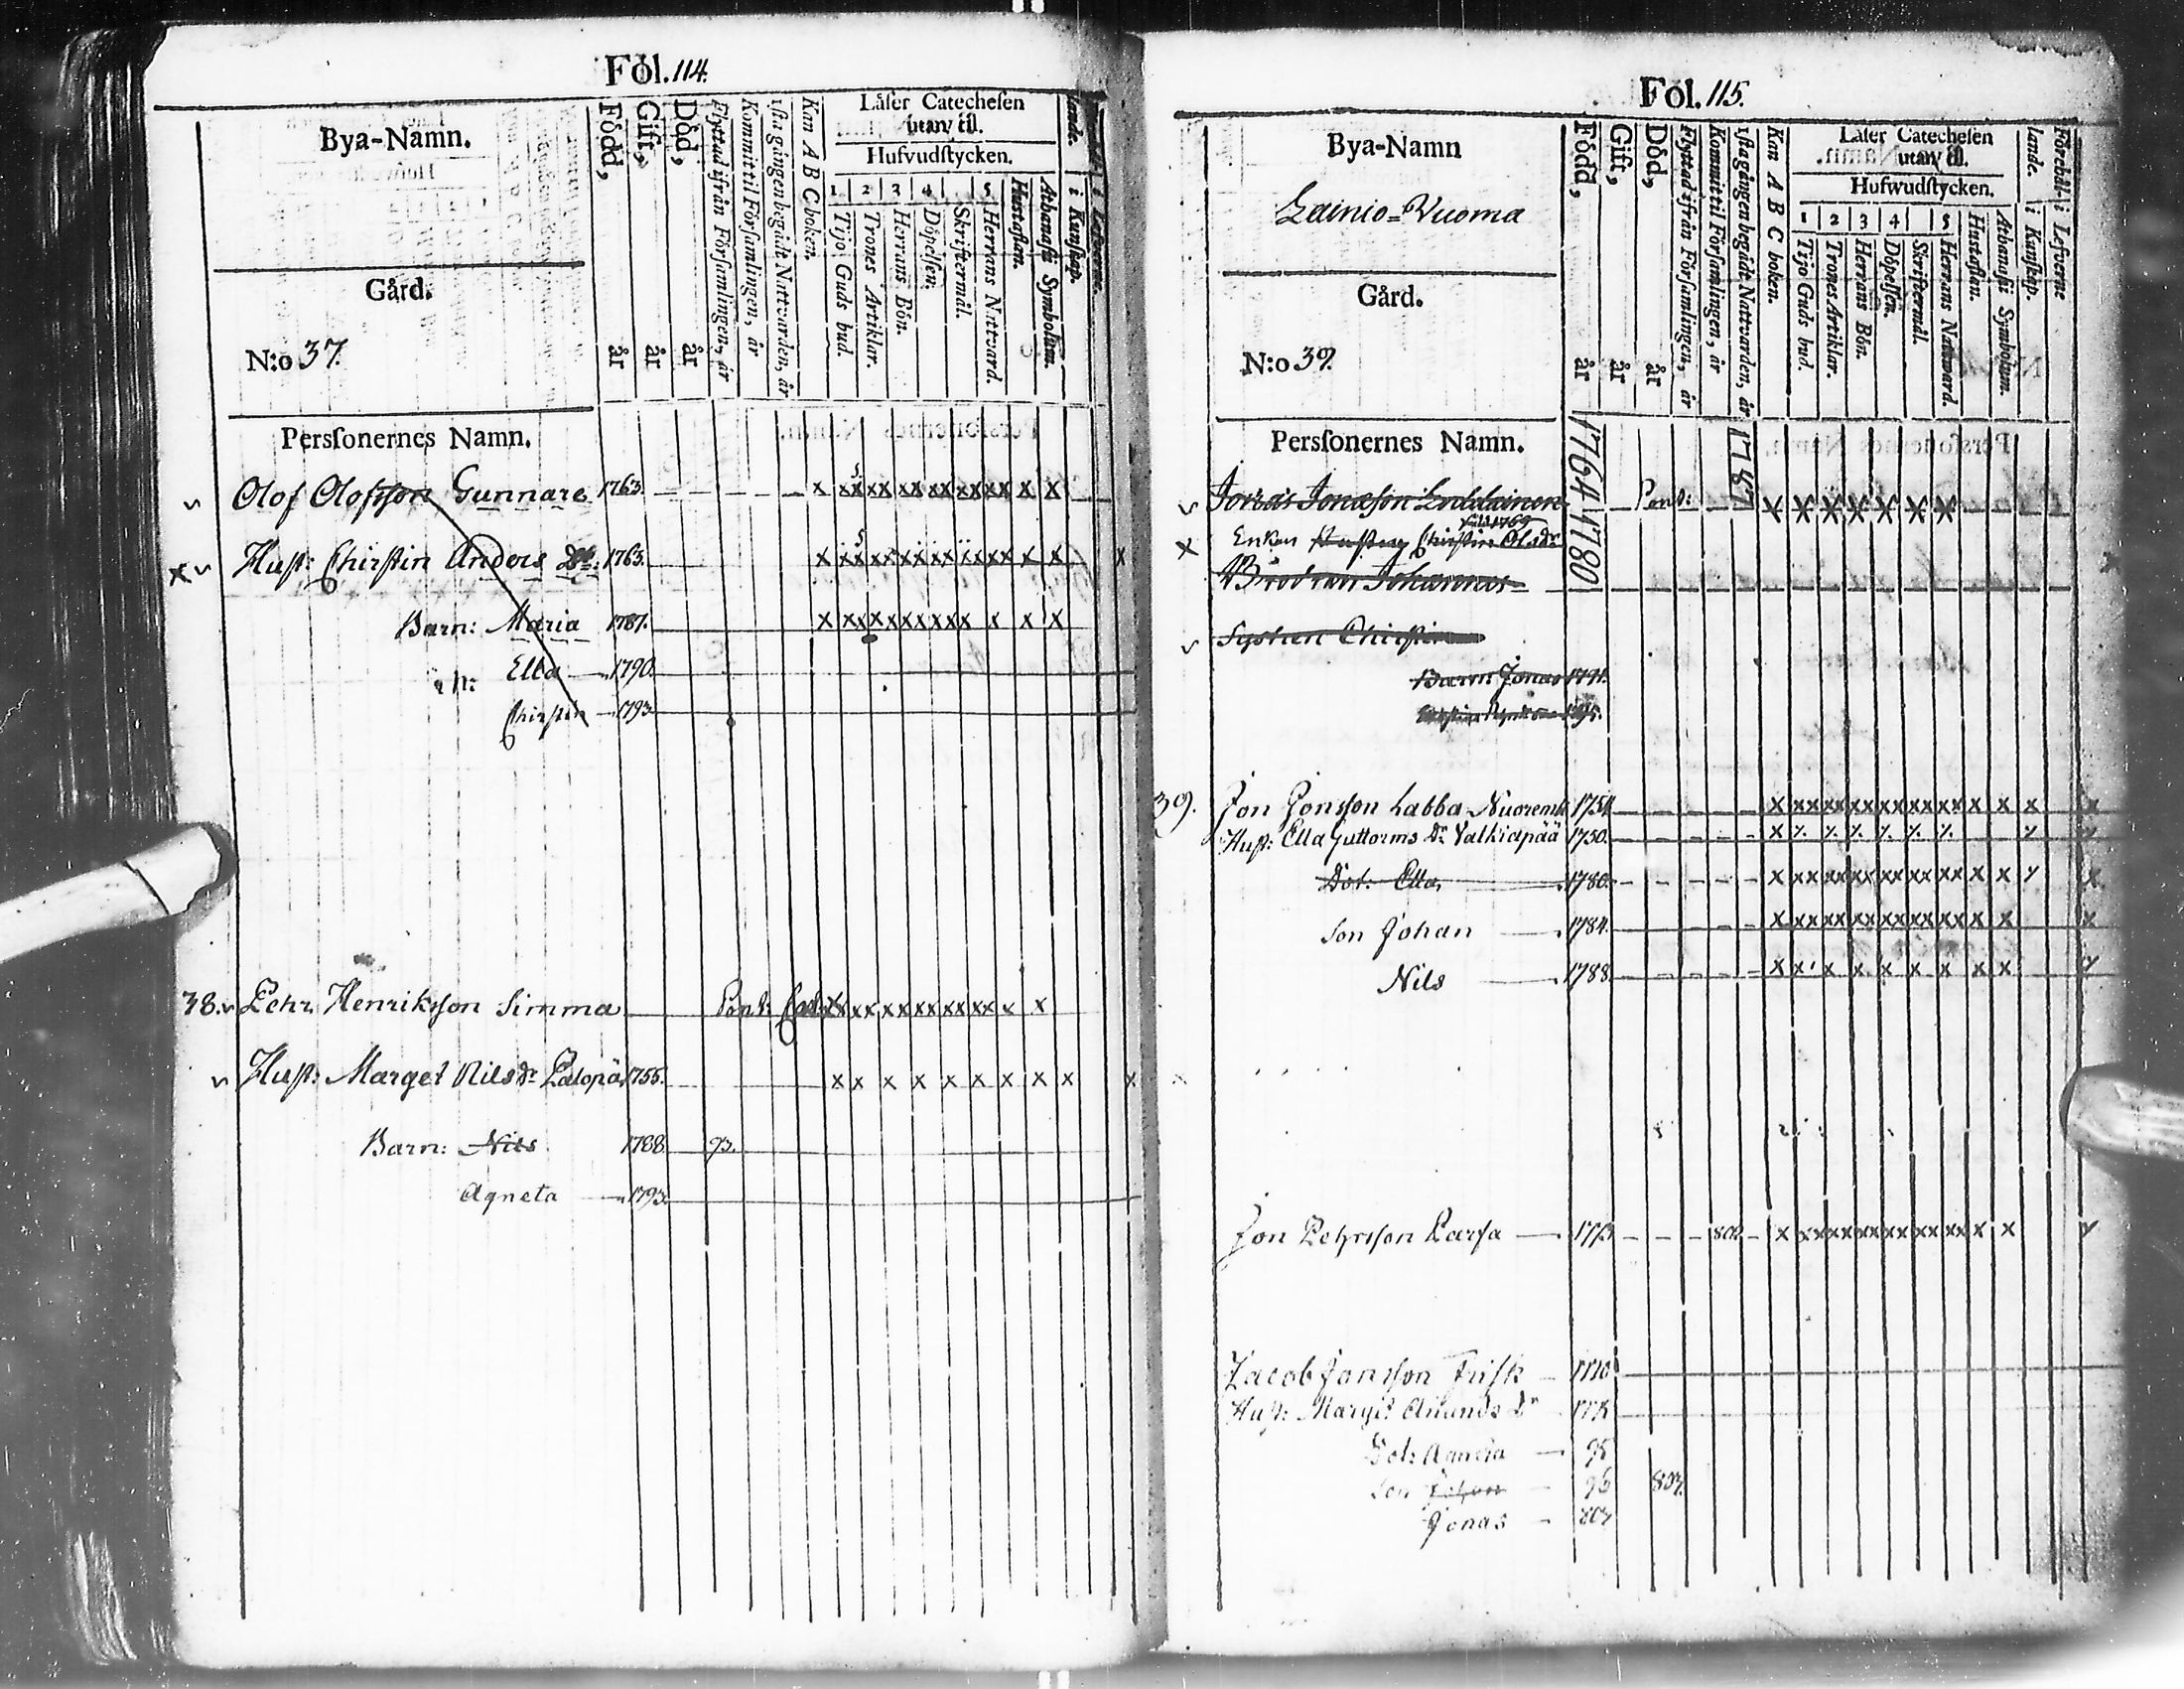 Föl. 114.
Bya-Namn.
Gård.
N:o 37.
Född, år
Gift, år
Död, år
Flyttad ifrån Församlingen, år
Kommit til Församlingen, år
1sta gången begådt Nattvarden, år
Kan A B C boken.
Läser Catechesen
utan til.
Hufvudstycken.
1 2 3 4 5
Tijo Guds bud.
Trones Artiklar.
Herrans Bön.
Döpelsen.
Skriftermål.
Herrans Nattvard.
Hustaflan.
Athanasii Symbolum.
i Kunskap.
i Lefverne.
Perssonernes Namn.
Olof Olofsson Gunnare 1763. x xx xx xx xx xx xx x x
Hust: Chirstin Anders Dr. 1763. x xx xx xx xx xx xx x x x
Barn: Maria 1787. x xx xx xx xx xx x x x
Ella 1790.
Chirstin 1793.
38. Pehr Henriksson Simma xx xx xx xx xx xx x x
Hust: Marget Nils dr 1755. x x x x x x x x x x
Barn: Nils 1788. 93.
Agneta 1793.
Föl. 115.
Bya-Namn
Lainio=Vuoma
Gård.
N:o 39.
Född, år
Gift, år
Död, år
Flyttad ifrån Församlingen, år
Kommit til Församlingen, år
1sta gången begådt Nattvarden, år
Kan A B C boken.
Läser Catechesen
utan til.
Hufwudstycken.
1 2 3 4 5
Tijo Guds bud.
Trones Artiklar.
Herrans Bön.
Döpelsen.
Skriftermål.
Herrans Nattward.
Hustaflan.
Athanasii Symbolum.
i Kunskap.
i Lefverne
Perssonernes Namn.
Jonas Jonasson 1764 1787 x x x x x x x
Enkan Chirstin Ols dr
Brodren Johannes 1780
Systren Chirstin
Barn Jonas 1791.
39. Jon Jonsson Labba 1754. x xx xx xx xx xx xx x x x x
Hust: Ella Guttorms Dr Valkiapää 1750. x x x x x x x x
Dot: Ella 1780. x xx xx xx xx xx xx x x x x
Son Johan 1784. x xx xx xx xx xx xx x x x
Nils 1788. x x x x x x x x x
Jon Pehrsson Parfa 1773 802 x xx xx xx xx xx xx x x
Jacob Jonsson Frisk
Hust: Marget Amunds dr
Dot: Agneta 95
Son Johan 96 803.
Jonas 803